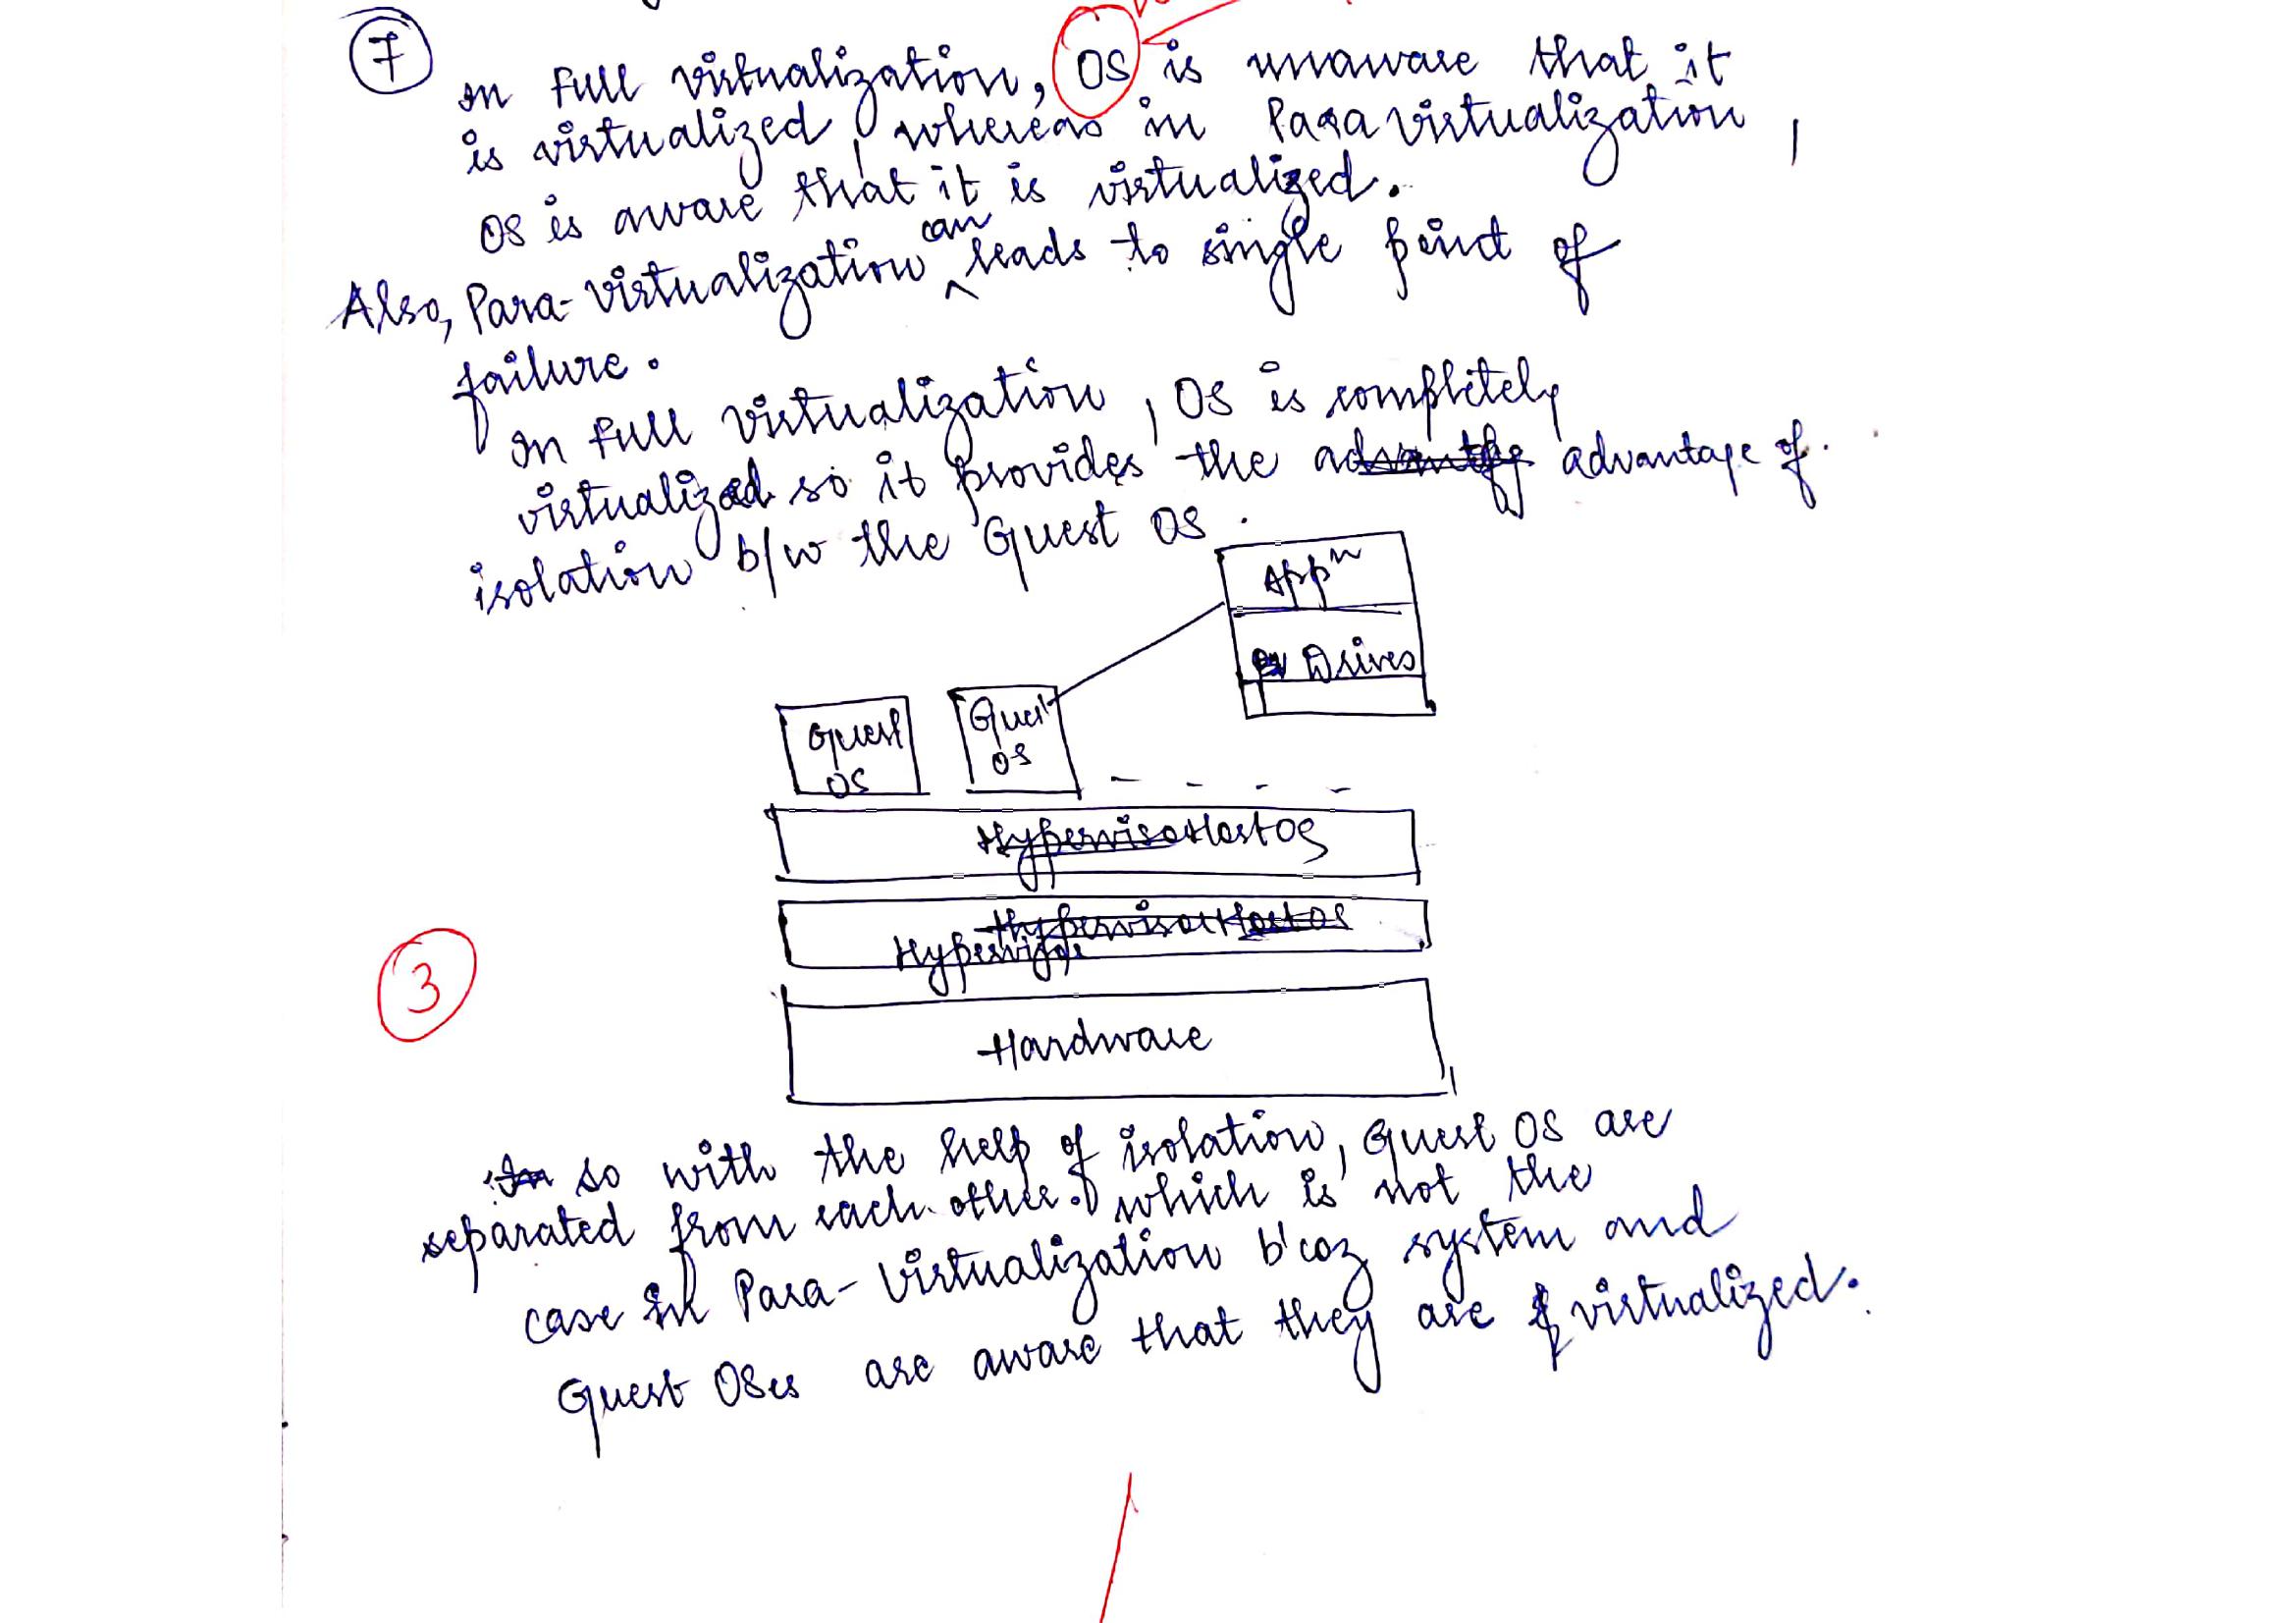 7
In Full virtualization, OS is unaware that it
is virtualized, whereas in Para virtualization,
OS is aware that it is virtualized.
Also, Para-virtualization can leads to single point of
failure.
In Full virtualization, OS is completely
virtualized so it provides the advantage of
isolation b/w the Guest OS.
Appn
Drives
Guest
OS
Guest
OS
- - - -
Hypervisor Host OS
Hypervisor Host OS
Hypervisor
3
Hardware
so with the help of isolation, Guest OS are
separated from each other. which is not the
case in Para-Virtualization b'coz system and
Guest OSes are aware that they are virtualized.